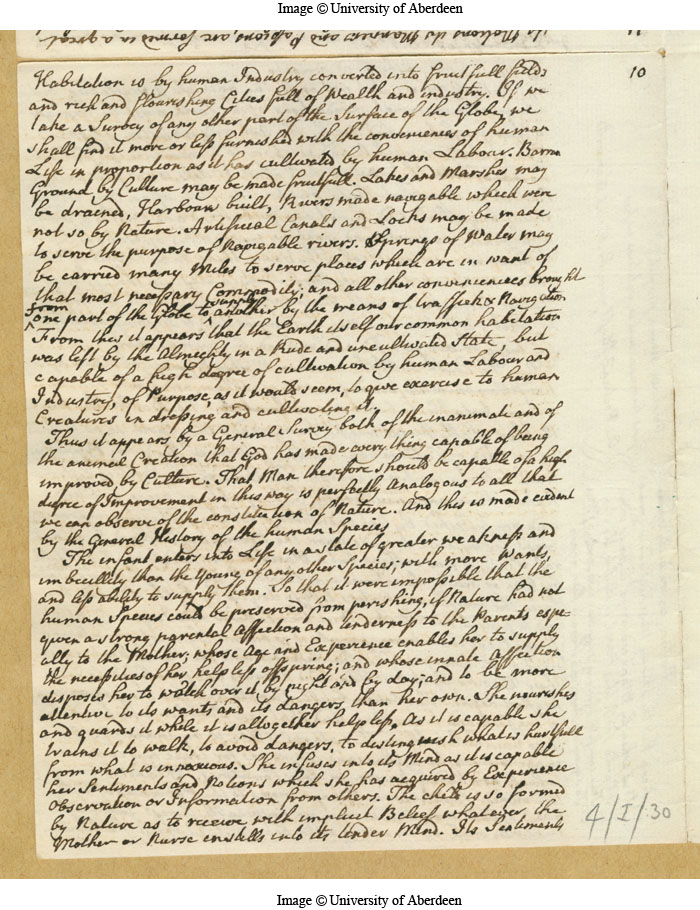 Image © University of Aberdeen
its Notions its Manners and Passions, are formed in a great
11
10
Habitation is by human Industry converted into fruitfull fields
and rich and flourishing Cities full of Wealth and industry. If we
take a Survey of any other part of the Surface of the Globe, we
shall find it more or less furnished with the conveniences of human
Life in proportion as it has cultivated by human Labour. Barren
Ground by Culture may be made fruitfull. Lakes and Marshes may
be drained, Harbours built, Rivers made navigable which were
not so by Nature. Artificial Canals and Locks may be made
to serve the purpose of Navigable rivers. Springs of Water may
be carried many Miles to serve places which are in want of
that most necessary Commodity; and all other conveniences brought
From one part of the Globe to supply another by the means of traffick & Navigation
From this it appears that the Earth itself our common habitation
was left by the Almighty in a Rude and uncultivated State, but
capable of a high degree of cultivation by human Labour and
Industry, of Purpose, as it would seem, to give exercise to human
Creatures in dressing and cultivating it.
Thus it appears by a General Survey both of the inanimate and of
the animal Creation that God has made every thing capable of being
improved by Culture. That Man therefore should be capable of a high
degree of Improvement in this way is perfectly Analogous to all that
we can observe of the constitution of Nature. And this is made evident
by the General History of the human Species
The infant enters into Life in a state of greater weakness and
imbecillity than the Young of any other Species; with more Wants,
and less ability to supply them. So that it were impossible that the
human Species could be preserved from perishing, if Nature had not
given a strong parental Affection and tenderness to the Parents espe-
ally to the Mother; whose Age and Experience enables her to supply
the necessities of her helpless offspring; and whose innate affection
disposes her to watch over it by night and by day; and to be more
attentive to its wants and its dangers, than her own. She nourishes
and guards it while it is altogether helpless. As it is capable she
trains it to walk, to avoid dangers, to distinguish what is hurtfull
from what is innoxious. She infuses into its Mind as it is capable
her Sentiments and Notions which she has acquired by Experience
Observation or Information from others. The child is so formed
by Nature as to receive with implicit Belief whatever the
Mother or Nurse instills into its tender Mind. Its Sentiments
4/I/30
Image © University of Aberdeen